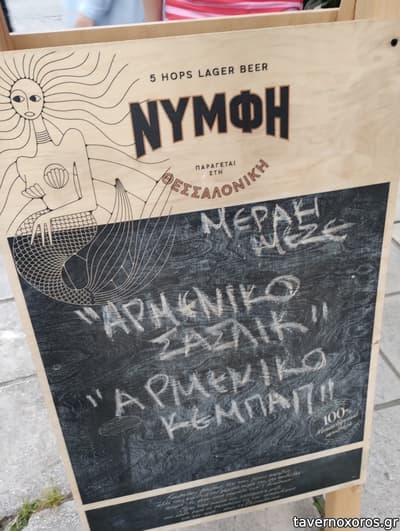 5 HOPS LAGER BEER
ΝΥΜΦΗ
ΠΑΡΑΓΕΤΑΙ
ΣΤΗ
ΘΕΣΣΑΛΟΝΙΚΗ
ΜΕΡΑΚΙ
ΜΕΖΕ
"ΑΡΜΕΝΙΚΟ
ΣΑΣΛΙΚ"
"ΑΡΜΕΝΙΚΟ
ΚΕΜΠΑΠ"
100%
tavernoxoros.gr